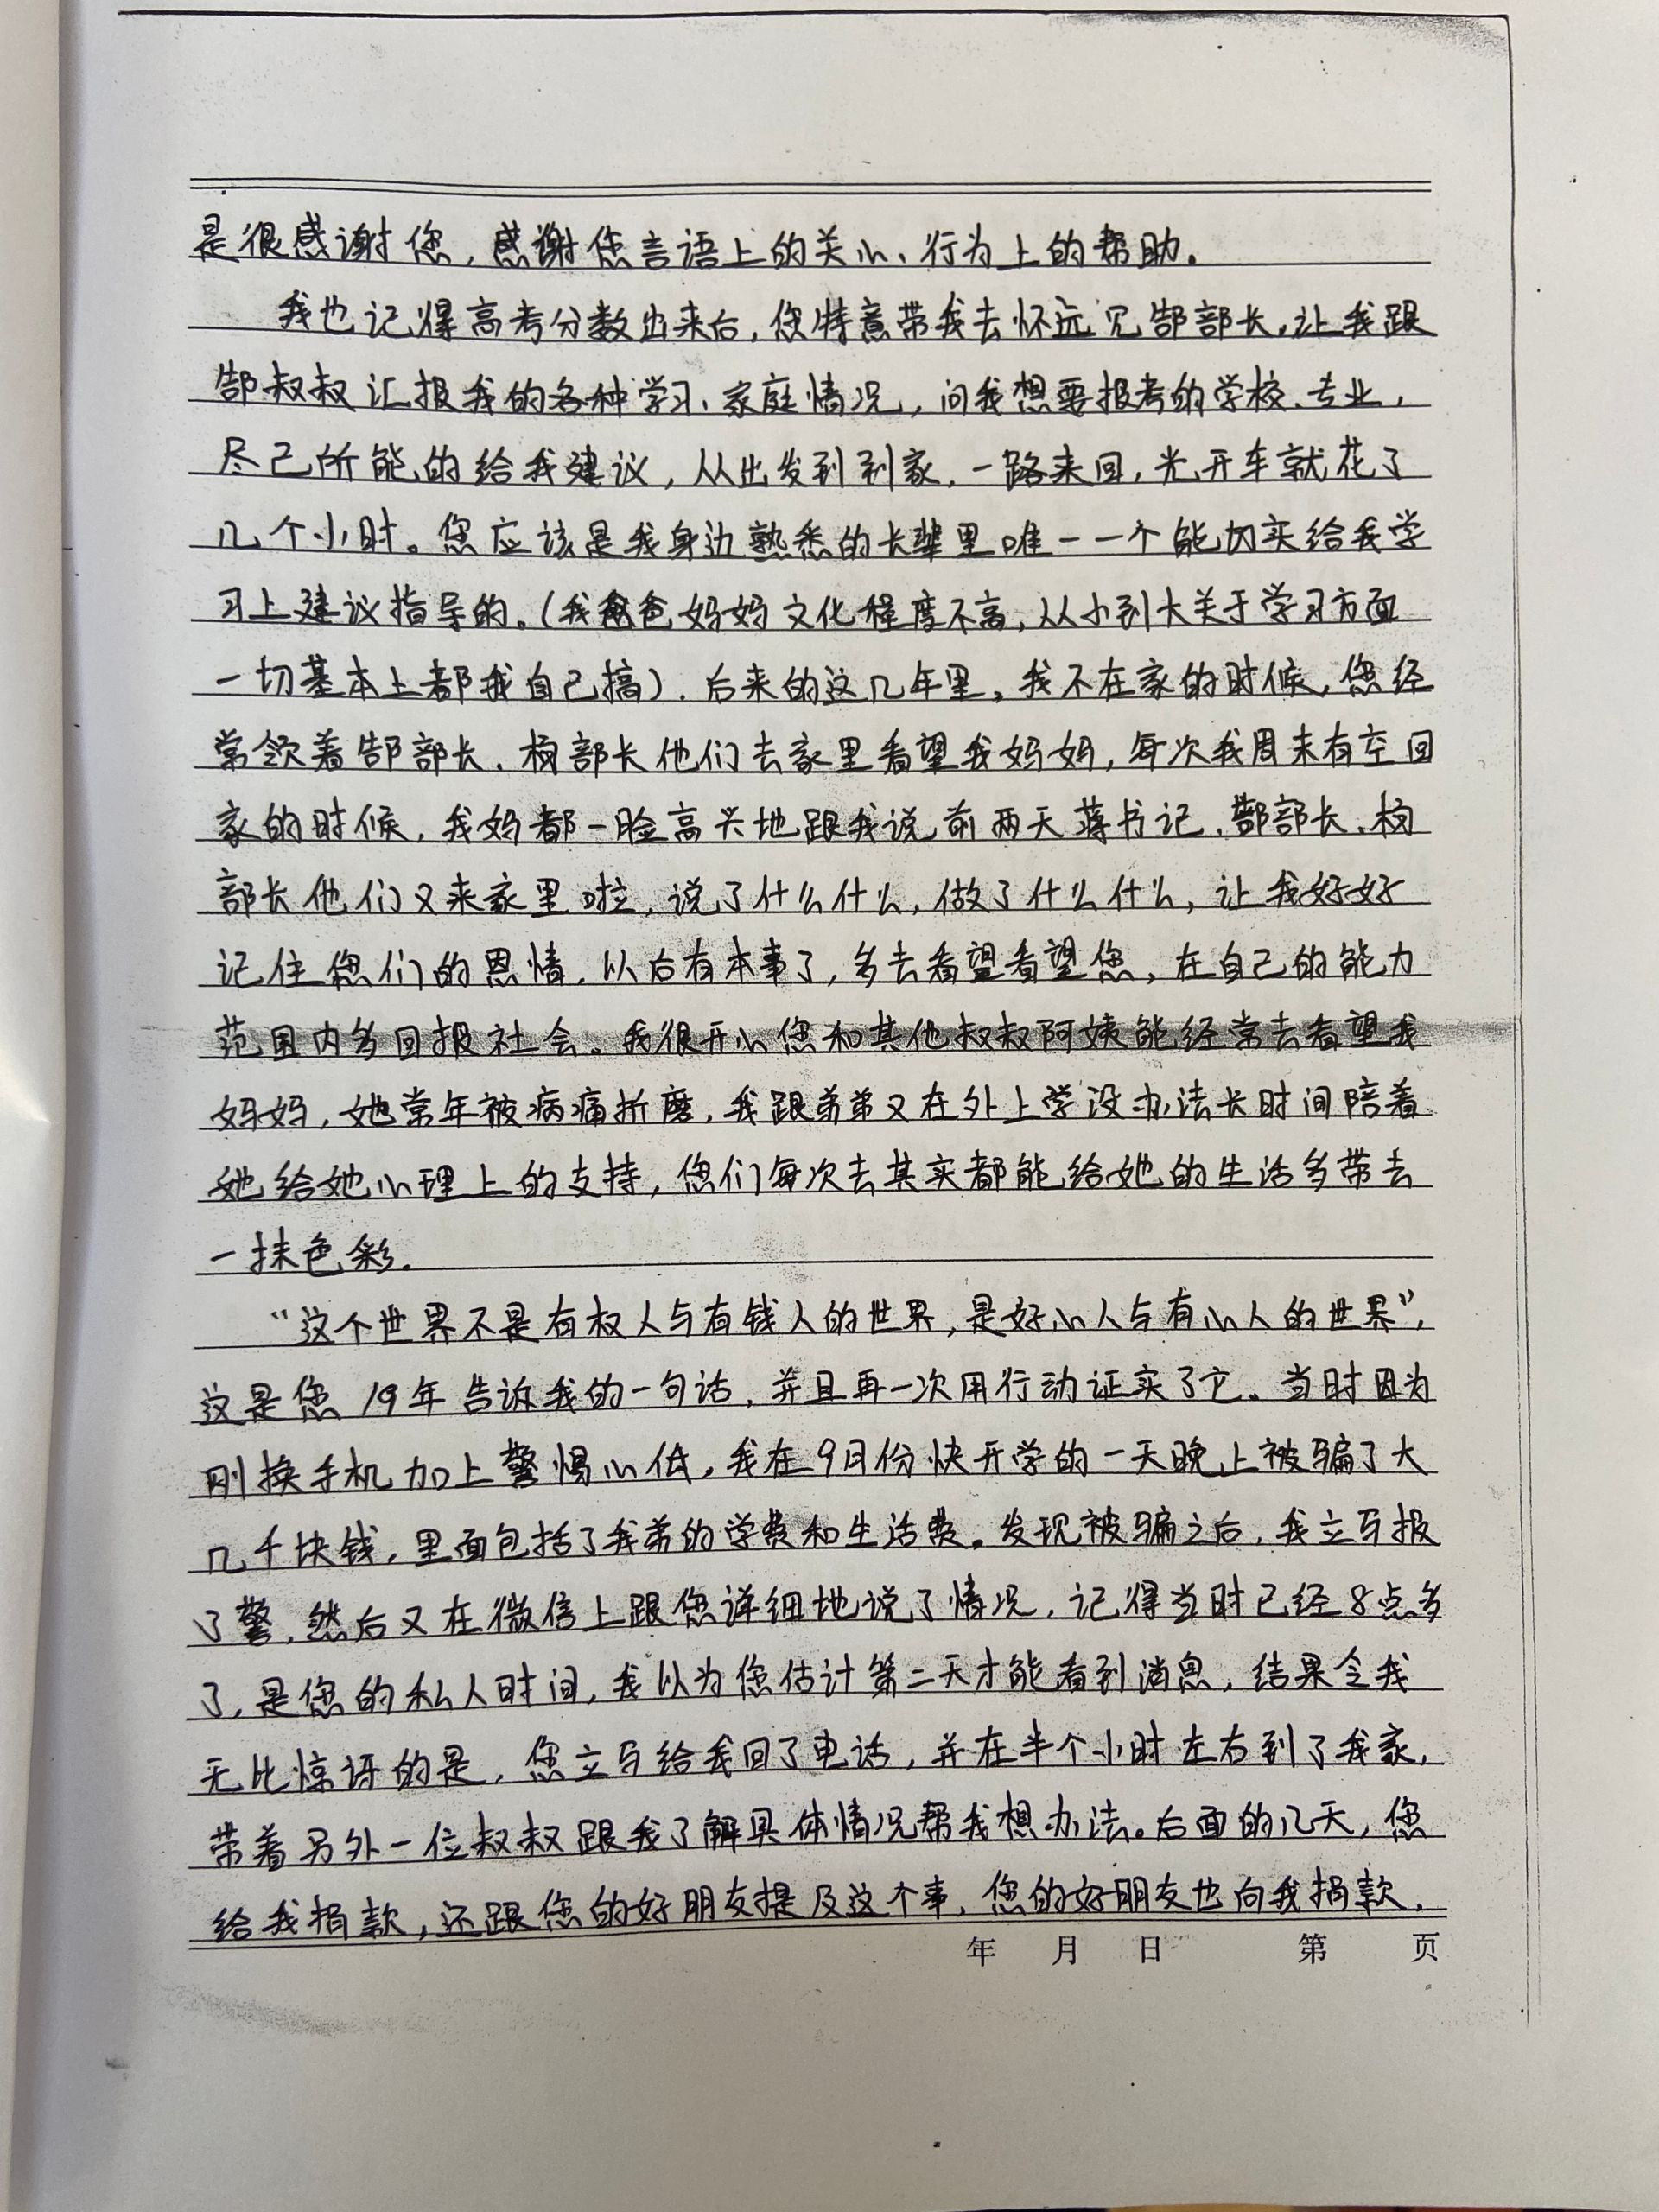 是很感谢您，感谢您言语上的关心、行为上的帮助。
我也记得高考分数出来后，您特意带我去怀远见郜部长，让我跟
郜叔叔汇报我的各种学习、家庭情况，问我想要报考的学校、专业，
尽己所能的给我建议，从出发到到家，一路来回，光开车就花了
几个小时。您应该是我身边熟悉的长辈里唯一一个能切实给我学
习上建议指导的。（我爸妈妈文化程度不高，从小到大关于学习方面
一切基本上都我自己搞）。后来的这几年里，我不在家的时候，您经
常领着郜部长、杨部长他们去家里看望我妈妈，每次我周末有空回
家的时候，我妈都一脸高兴地跟我说前两天蒋书记、郜部长、杨
部长他们又来家里啦，说了什么什么，做了什么什么，让我好好
记住您们的恩情，以后有本事了，多去看望看望您，在自己的能力
范围内多回报社会。我很开心您和其他叔叔阿姨能经常去看望我
妈妈，她常年被病痛折磨，我跟弟弟又在外上学没办法长时间陪着
她给她心理上的支持，您们每次去其实都能给她的生活多带去
一抹色彩。
“这个世界不是有权人与有钱人的世界，是好心人与有心人的世界”，
这是您19年告诉我的一句话，并且再一次用行动证实了它。当时因为
刚换手机加上警惕心低，我在9月份快开学的一天晚上被骗了大
几千块钱，里面包括了我弟的学费和生活费。发现被骗之后，我立马报
了警，然后又在微信上跟您详细地说了情况，记得当时已经8点多
了，是您的私人时间，我以为您估计第二天才能看到消息，结果令我
无比惊讶的是，您立马给我回了电话，并在半个小时左右到了我家，
带着另外一位叔叔跟我了解具体情况帮我想办法。后面的几天，您
给我捐款，还跟您的好朋友提及这个事，您的好朋友也向我捐款，
年 月 日 第 页